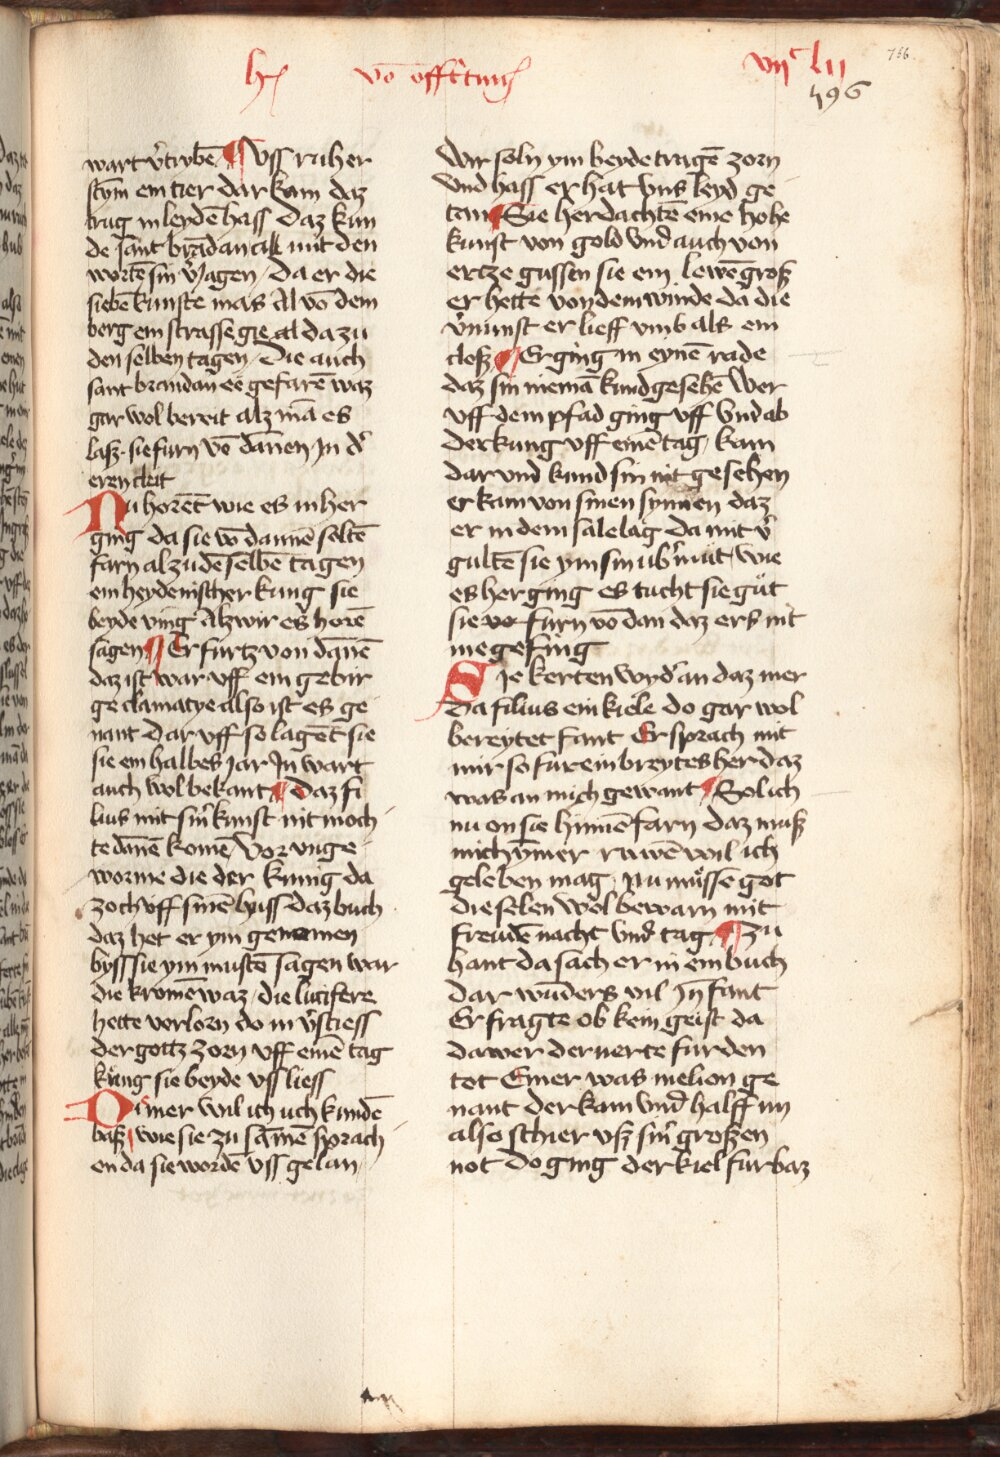 hꝭ vō offter̄ung vijᶜ lij
766
796
wart v̓trybē ¶ Uss ruher
stym ein tier dar kam daz
trug in leydē hass daz kun
de sant brādan cile mit den
wortē sin v̓iagen / Da er die
siebē kunste mas Al vō dem
berg ein strasse gie al da zu
den selben tagen / Die auch
sant brandan ee gefarē waz
gar wol bereit alz mā es
lasz · sie furn vō dānen Jn d̓
eren cleit
Nu horēt wie es in her
ging da sie vō dannē soltē
farn al zu dē selbē tagen
ein heydenischer kung sie
beyde ving Alz wir es horē
sagen ¶ Er furtz von dānē
daz ist war uff ein gebir
ge clamatye also ist es ge
nant dar uff so lagēt sie
sie ein halbes jar In wart
auch wol bekant ¶ Daz fi
lius mit sin̓ kunst nit moch
te dānē komē / Vor unge
worme die der kunig da
zoch uff sinē huss daz buch
daz het er ym genomen
byss sie ym mustē sagen war
die kromē waz / die lucifere
hette vorlorn do in v̓stiess
der gottz zorn uff einē tag
kung sie beyde uss liess
Dimer wil ich uch kundē
basz / wie sie zu sāmē sprach
en da sie wordē uss gelan
Wir soln ym beyde tragē zorn
und hass er hat uns leyd ge
tan ¶ Sie herdachtē eine hohe
kunst von gold und̓ auch von
ertze gussen sie ein lewē grosz
er hette von dem winde da die
v̓nunst er lieff umb als ein
closz ¶ Er ging in eynē rade
daz sin niemā kund gesehē Wer
uff dem pfad ging uff und̓ ab
der kung uff einē tag / kam
dar und kund sin nit gesehen
er kam von sinen synnen daz
er in dem sale lag da mit v̓
gultē sie ym sin ub̓mut / wie
es herging es tucht sie gut
sie furn vō dan daz ers nit
me gefing
Sie kerten wyd̓ an daz mer
Da filius ein kiele do gar wol
bereytet fant Er sprach mit
mir so fur ein breytes her daz
was an mich gewant ¶ Sol ich
nu on sie hinnē farn daz musz
mich ȳmer ruwē wil ich
geleben mag · Nu mussē got
die selen wol bewarn mit
freudē nacht und̓ tag ¶ Zu
hant da sach er in ein buch
dar wund̓ers vil Jn fant
Er fragte ob kein geist da
da wer der nerte fur den
tot Einer was melion ge
nant der kam und̓ halff im
also schier usz sin̓ groszen
not Do ging der kiel fur baz